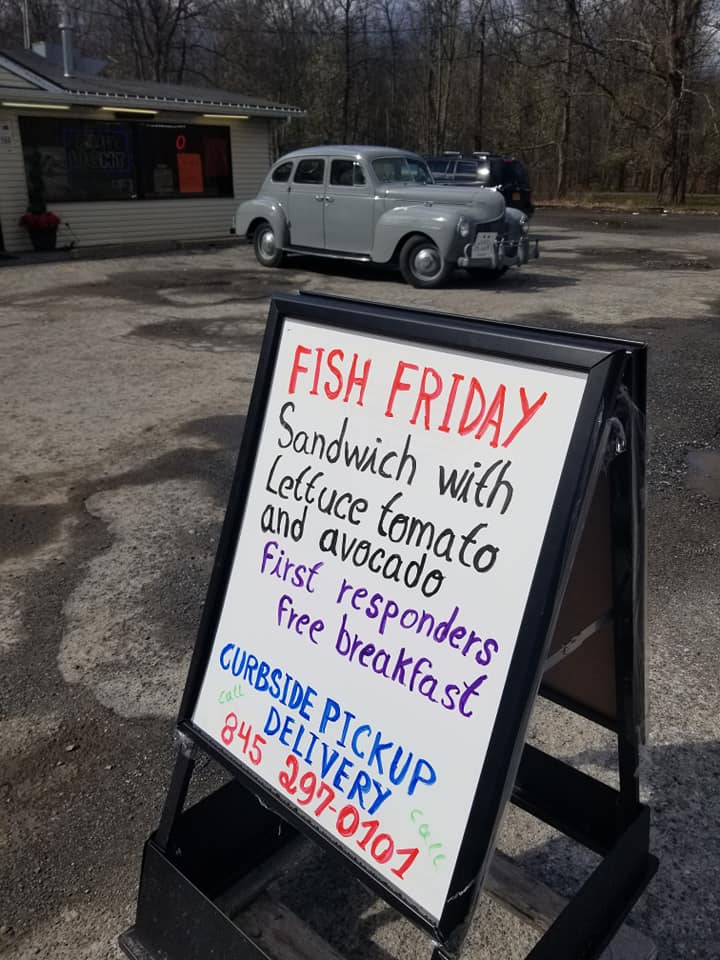 FISH FRIDAY
Sandwich with
Lettuce tomato
and avocado
first responders
free breakfast
CURBSIDE PICKUP
DELIVERY
call
845 297-0101
call